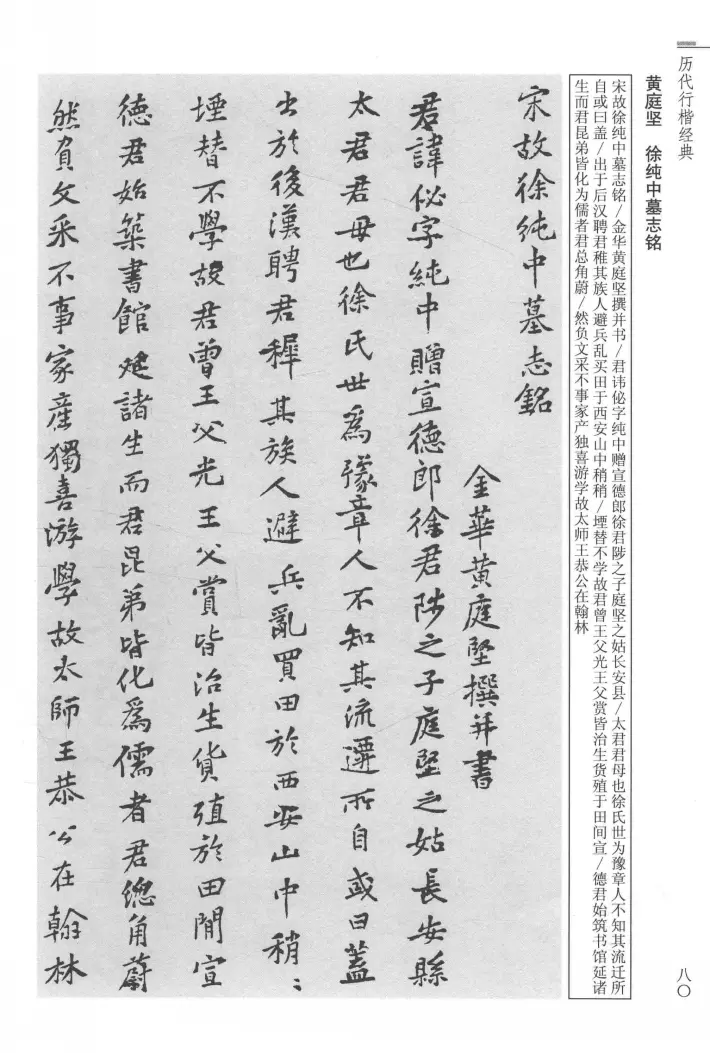 历代行楷经典
八〇
黄庭坚 徐纯中墓志铭
宋故徐纯中墓志铭/金华黄庭坚撰并书/君讳佖字纯中赠宣德郎徐君陟之子庭坚之姑长安县/太君君母也徐氏世为豫章人不知其流迁所
自或曰盖/出于后汉聘君稚其族人避兵乱买田于西安山中稍稍/堙替不学故君曾王父光王父赏皆治生货殖于田间宣/德君始筑书馆延诸
生而君昆弟皆化为儒者君总角蔚/然负文采不事家产独喜游学故太师王恭公在翰林
宋故徐純中墓志銘
金華黃庭堅撰并書
君諱佖字純中贈宣德郎徐君陟之子庭堅之姑長安縣
太君君母也徐氏世為豫章人不知其流遷所自或曰蓋
出於後漢聘君稺其族人避兵亂買田於西安山中稍〻
堙替不學故君曾王父光王父賞皆治生貨殖於田間宣
德君始築書館延諸生而君昆弟皆化為儒者君總角蔚
然負文采不事家產獨喜游學故太師王恭公在翰林